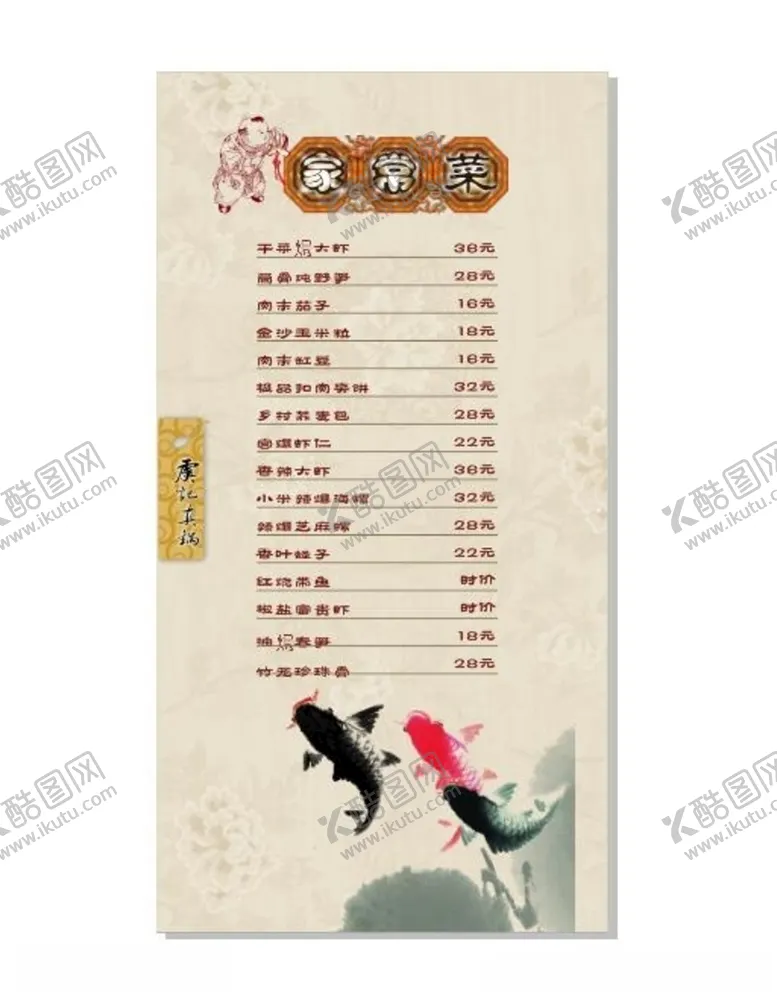 家常菜
干菜焗大虾 36元
扁骨炖野笋 28元
肉末茄子 16元
金沙玉米粒 18元
肉末缸豆 16元
极品扣肉夹饼 32元
乡村荞麦包 28元
宫爆虾仁 22元
香辣大虾 36元
小米辣爆海螺 32元
辣爆芝麻螺 28元
香叶蛏子 22元
红烧带鱼 时价
椒盐富贵虾 时价
油焗春笋 18元
竹筅珍珠骨 28元
虞记真锅
酷图网
www.ikutu.com